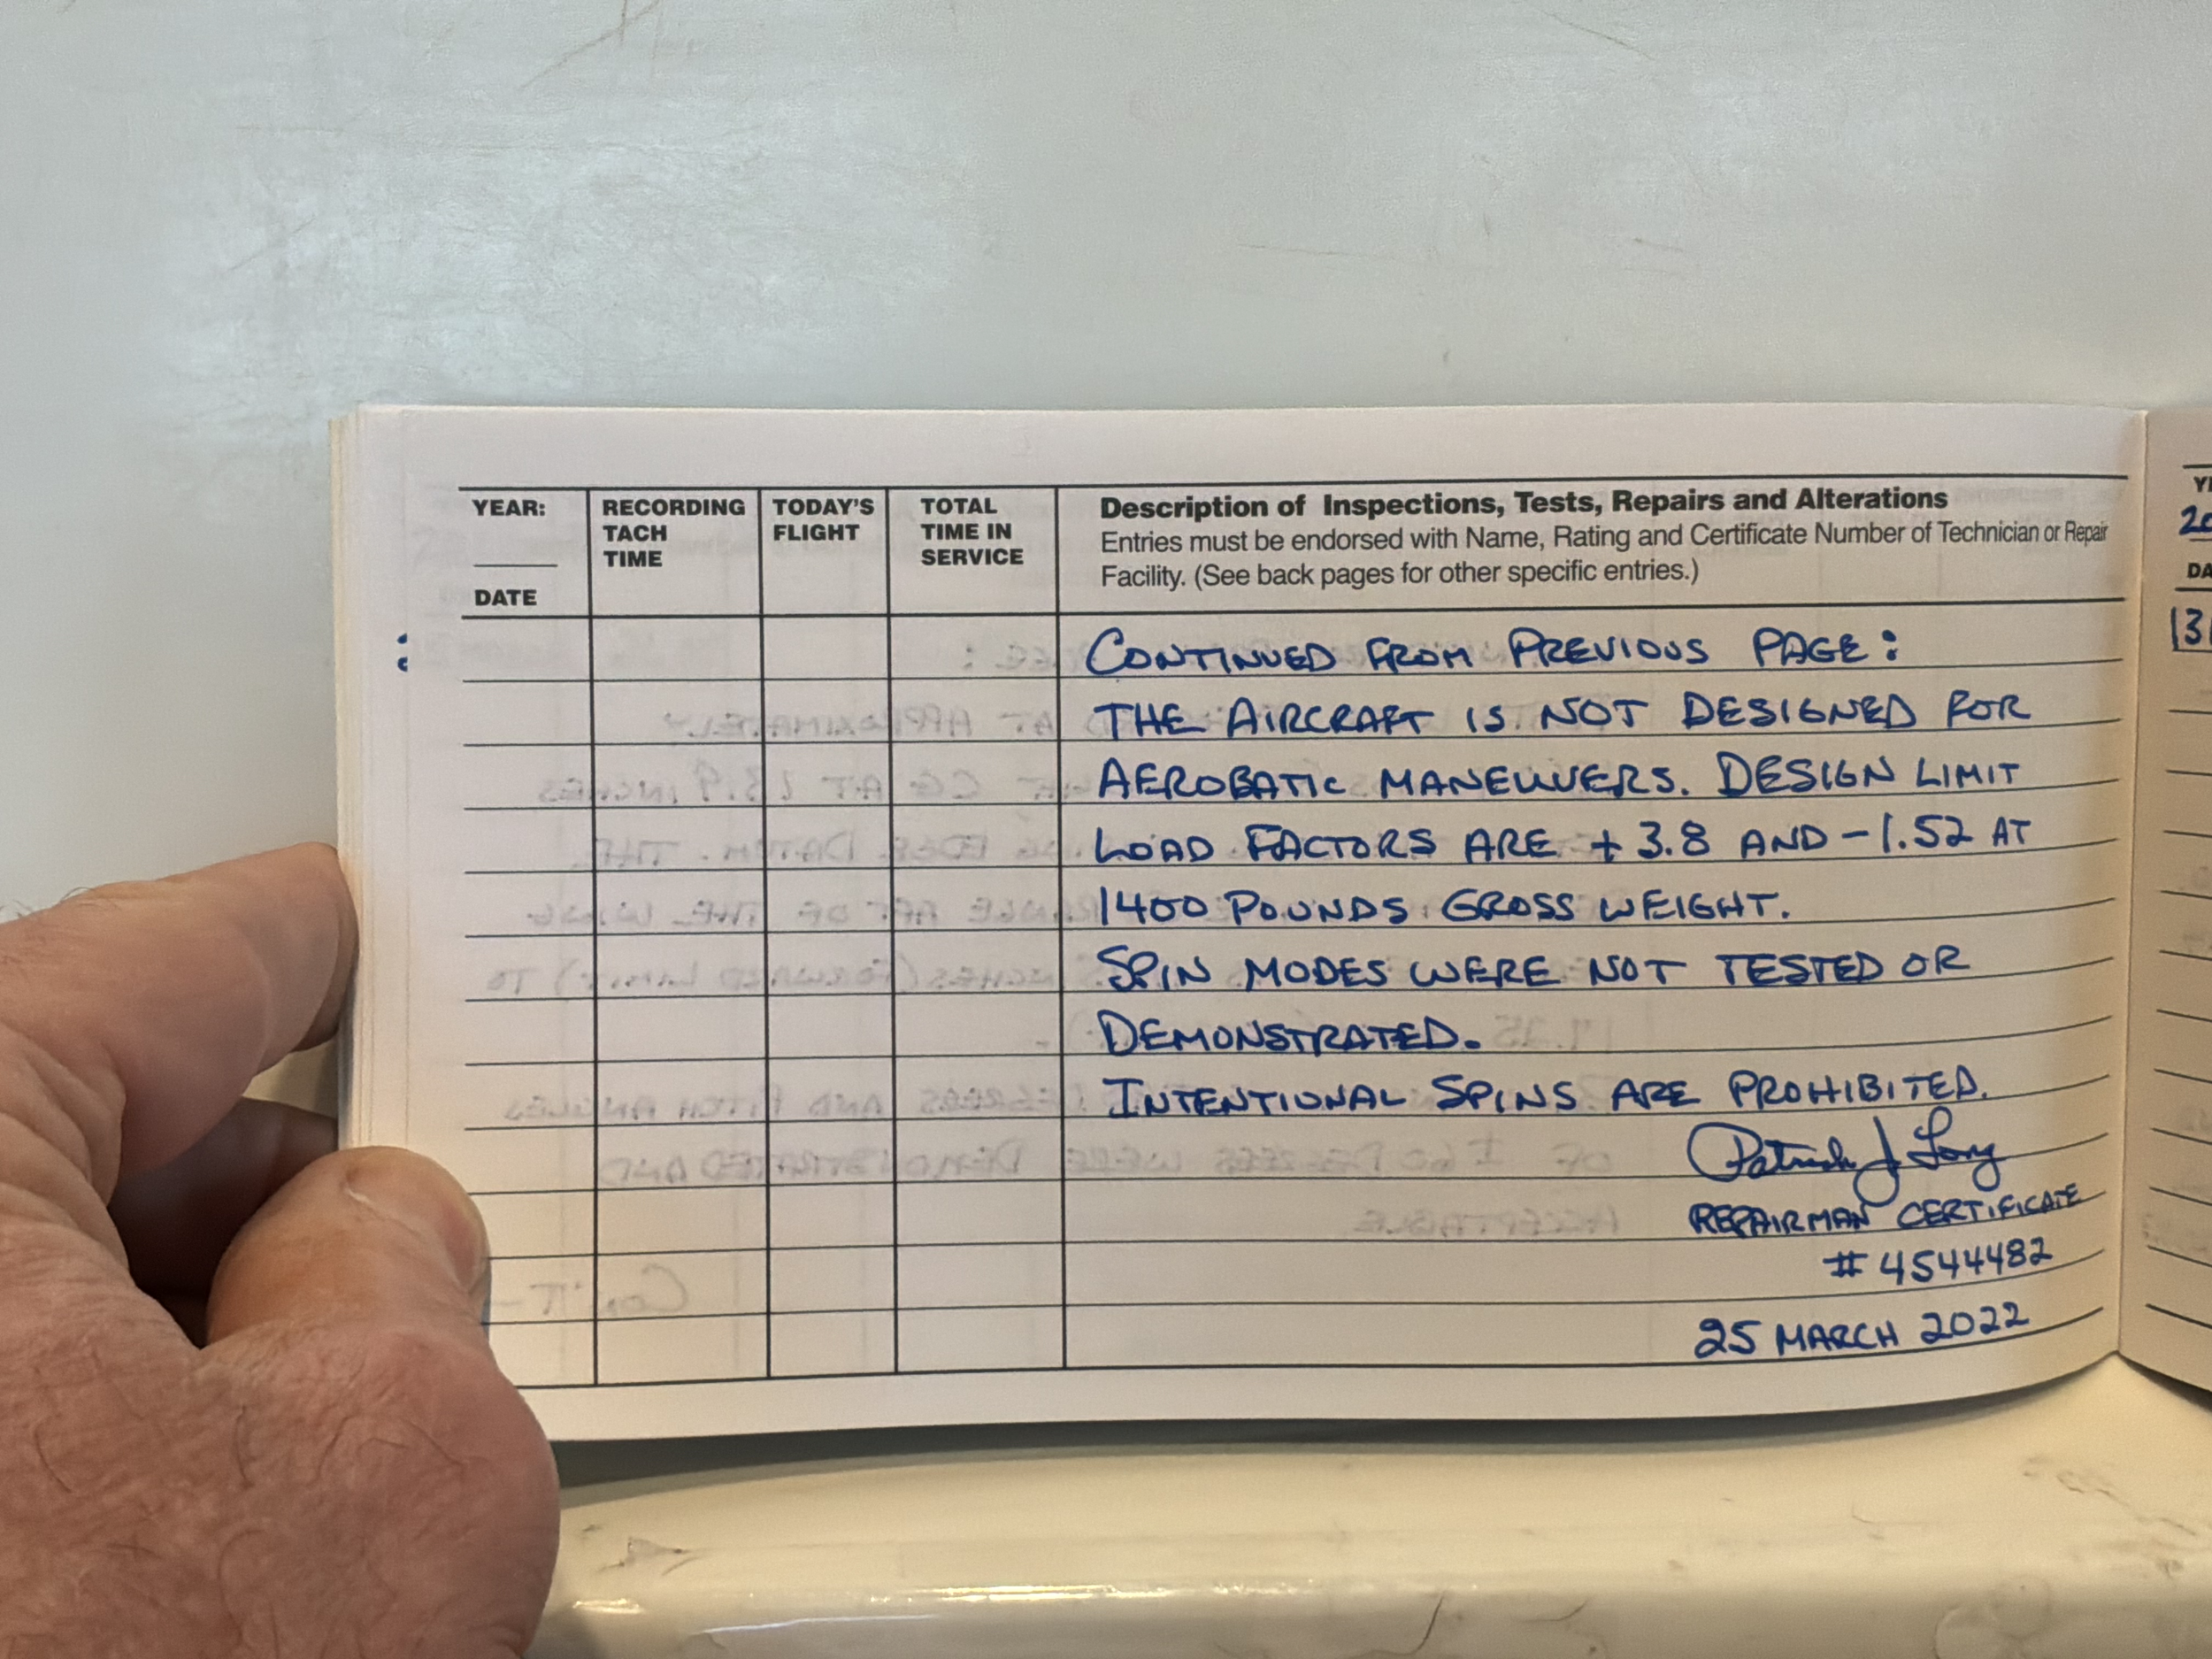 YEAR:
DATE
RECORDING
TACH
TIME
TODAY'S
FLIGHT
TOTAL
TIME IN
SERVICE
Description of Inspections, Tests, Repairs and Alterations
Entries must be endorsed with Name, Rating and Certificate Number of Technician or Repair
Facility. (See back pages for other specific entries.)
CONTINUED FROM PREVIOUS PAGE:
THE AIRCRAFT IS NOT DESIGNED FOR
AEROBATIC MANEUVERS. DESIGN LIMIT
LOAD FACTORS ARE +3.8 AND -1.52 AT
1400 POUNDS GROSS WEIGHT.
SPIN MODES WERE NOT TESTED OR
DEMONSTRATED.
INTENTIONAL SPINS ARE PROHIBITED.
Patrick J
REPAIRMAN CERTIFICATE
# 4544482
25 MARCH 2022